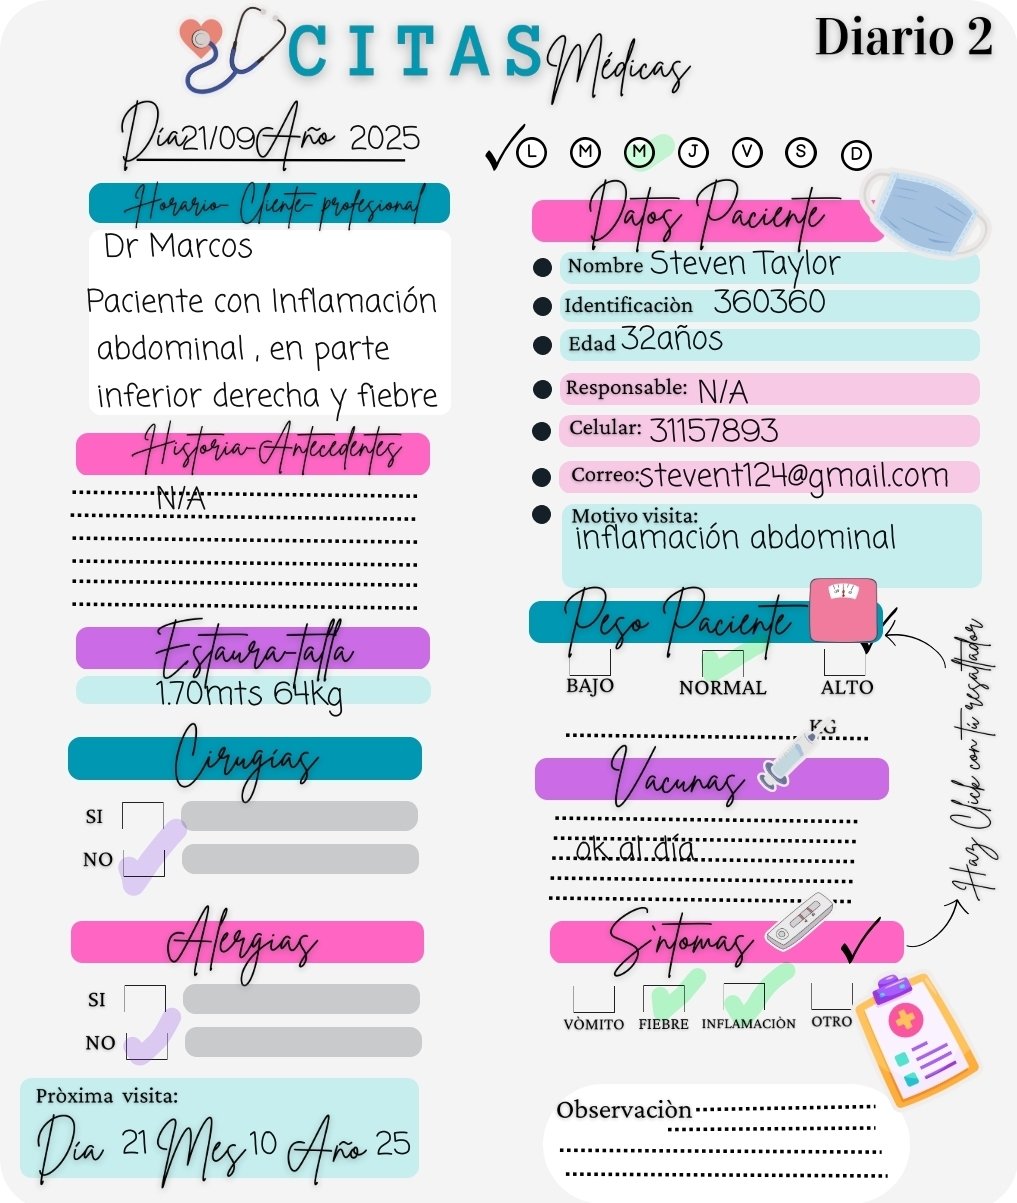 CITAS Médicas
Diario 2
Día 21/09 Año 2025
L M M J V S D
Horario- Cliente- profesional
Dr Marcos
Paciente con Inflamación
abdominal , en parte
inferior derecha y fiebre
Historia-Antecedentes
N/A
Estaura-talla
1.70mts 64kg
Cirugías
SI
NO
Alergias
SI
NO
Pròxima visita:
Día 21 Mes 10 Año 25
Datos Paciente
Nombre Steven Taylor
Identificaciòn 360360
Edad 32años
Responsable: N/A
Celular: 31157893
Correo: stevent124@gmail.com
Motivo visita:
inflamación abdominal
Peso Paciente
BAJO NORMAL ALTO
KG
Vacunas
ok al día
Sìntomas
VÒMITO FIEBRE INFLAMACIÒN OTRO
Haz Click con tú resaltador
Observaciòn